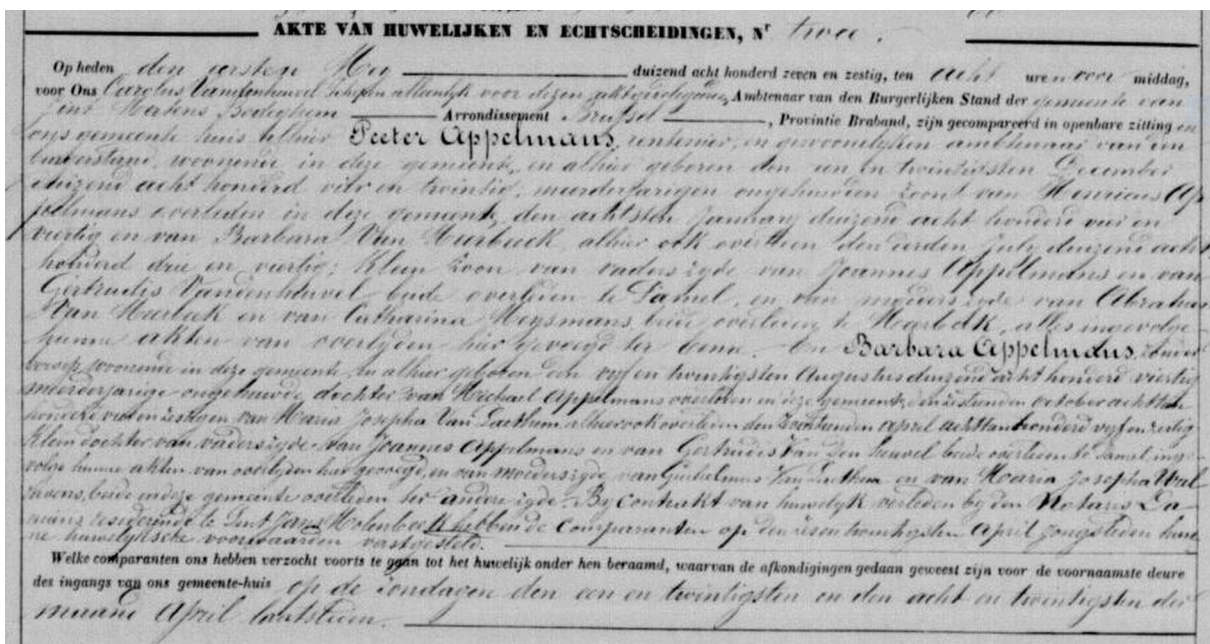 AKTE VAN HUWELIJKEN EN ECHTSCHEIDINGEN, Nr twee.
Op heden den ersten Mey duizend acht honderd zeven en zestig, ten acht ure voor middag,
voor Ons Carolus Vandenheuvel schepen voor dezen, Ambtenaar van den Burgerlijken Stand der gemeente van
Sint Martens Bodeghem Arrondissement Brussel, Provintie Braband, zijn gecompareerd in openbare zitting in
ons gemeente huis alhier Peeter Appelmans, rentenier, en gewoonelyken ambtenaar van den
burgerstand, woonende in deze gemeente, en alhier geboren den een en twintigsten December
duizend acht honderd vier en twintig, meerderjarigen ongehuwden zoon van Henricus Ap-
pelmans overleden in deze gemeente, den achtsten January duizend acht honderd vier en
viertig en van Barbara Van Heerbeeck, alhier ook overleden den derden July duizend acht
honderd drie en viertig; kleen zoon van vaders zyde van Joannes Appelmans en van
Gertrudis Vandenheuvel beide overleden te Lamel, en van moeders zyde van Abraham
Van Heerbek en van Catharina Heysmans, beide overleden te Meerbek, alles ingevolge
hunne akten van overlyden hier gevoegd ter eene. En Barbara Appelmans, zonder
beroep, woonende in deze gemeente, en alhier geboren den vyf en twintigsten Augustus duizend acht honderd viertig
meerderjarige ongehuwde dochter van Michael Appelmans overleden in deze gemeente, den october achttien
honderd en zestig en van Maria Josepha Van Laethem alhier ook overleden den April achttien honderd vyf en zestig
Klein dochter van vaders zyde van Joannes Appelmans en van Gertrudis Van den heuvel beide overleden te Lamel inge-
volge hunne akten van overlyden hier gevoegd, en van moeders zyde van Guilielmus Van Laethem en van Maria Josepha Wal-
ravens, beide in deze gemeente overleden ter andere zyde. By contrakt van huwelyk verleden bij den Notaris Da-
residerende te Sint Jans Molenbeek hebben de Comparanten op den twintigsten April jongsleden hun-
ne huwelyksche voorwaarden vastgesteld.
Welke comparanten ons hebben verzocht voorts te gaan tot het huwelijk onder hen beraamd, waarvan de afkondigingen gedaan geweest zijn voor de voornaamste deure
des ingangs van ons gemeente-huis op de zondagen den een en twintigsten en den acht en twintigsten der
maand April laatstleden.